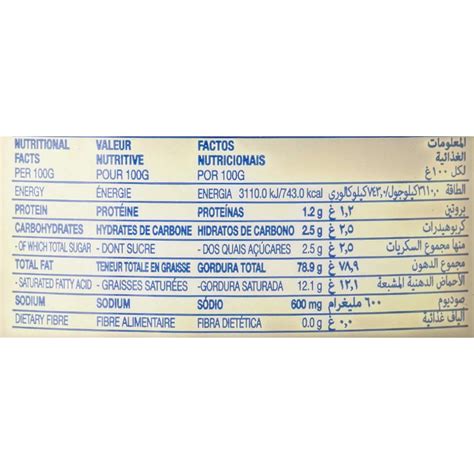 NUTRITIONAL VALEUR FACTOS المعلومات
FACTS NUTRITIVE NUTRICIONAIS الغذائية
PER 100G POUR 100G POR 100G لكل ١٠٠غ
ENERGY ÉNERGIE ENERGIA 3110.0 kJ/743.0 kcal الطاقة ٣١١٠,٠كيلوجول/٧٤٣,٠كيلوكالوري
PROTEIN PROTÉINE PROTEÍNAS 1.2 g بروتين ١,٢ غ
CARBOHYDRATES HYDRATES DE CARBONE HIDRATOS DE CARBONO 2.5 g كربوهيدرات ٢,٥ غ
- OF WHICH TOTAL SUGAR - DONT SUCRE - DOS QUAIS AÇÚCARES 2.5 g منها مجموع السكريات ٢,٥ غ
TOTAL FAT TENEUR TOTALE EN GRAISSE GORDURA TOTAL 78.9 g مجموع الدهون ٧٨,٩ غ
- SATURATED FATTY ACID - GRAISSES SATURÉES -GORDURA SATURADA 12.1 g الأحماض الدهنية المشبعة ١٢,١ غ
SODIUM SODIUM SÓDIO 600 mg صوديوم ٦٠٠ مليغرام
DIETARY FIBRE FIBRE ALIMENTAIRE FIBRA DIETÉTICA 0.0 g ألياف غذائية ٠,٠ غ